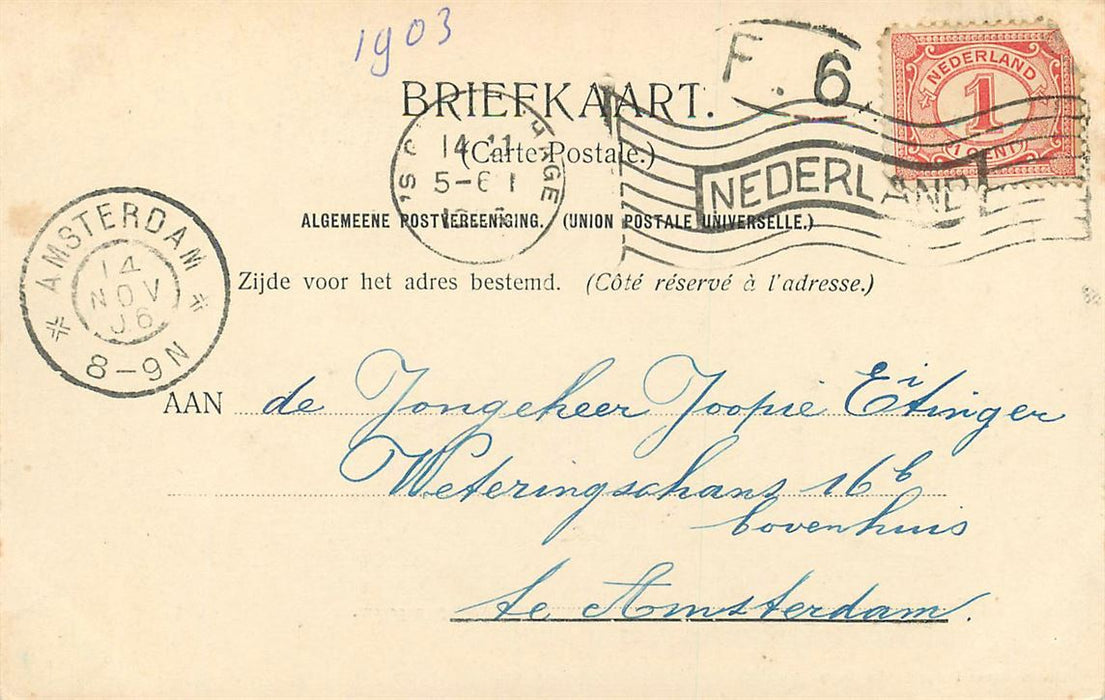 1903
F. 6
NEDERLAND
1
1 CENT
BRIEFKAART.
(Carte Postale.)
14 11
5-6
NEDERLAND
ALGEMEENE POSTVEREENIGING. (UNION POSTALE UNIVERSELLE.)
Zijde voor het adres bestemd. (Côté réservé à l'adresse.)
AMSTERDAM
14
NOV
06
8-9N
AAN de Jongeheer Joopie Etinger
Weteringschans 16 b
bovenhuis
te Amsterdam.